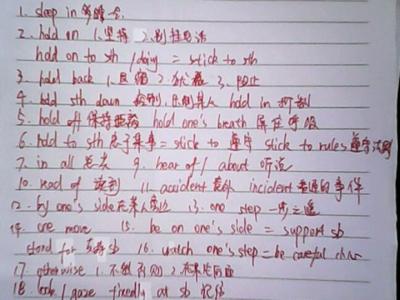 1. sleep in 睡懒觉
2. hold on 1.坚持 2.别挂电话
hold on to sth / doing = stick to sth
3. hold back 1. 2. 3. 阻止
4. hold sth down 控制, 压制某人 hold in 抑制
5. hold off 保持距离 hold one's breath 屏住呼吸
6. hold to sth 忠于某事 = stick to 遵守 stick to rules 遵守法则
7. in all 总共 9. hear of / about 听说
10. read of 读到 11. accident 意外 incident 普通的事件
12. by one's side 在某人旁边 13. one step 一步之遥
14. one move 15. be on one's side = support sb
stand for 支持 sb 16. watch one's step = be careful
17. otherwise 1. 不然,否则 2. 在其他方面
18. look / gaze fixedly at sb